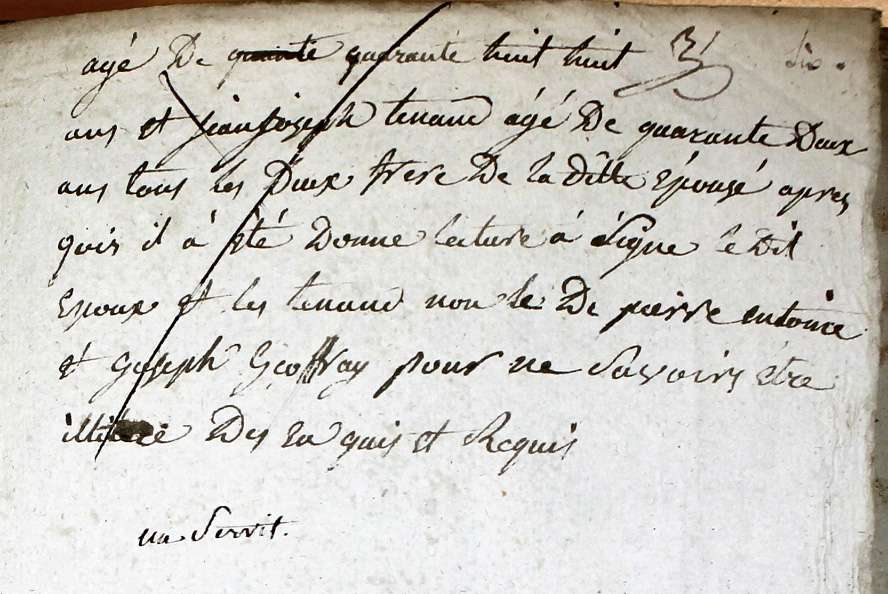 agé De quarante huit huit six.
ans et jean joseph tenaud agé De quarante Deux
ans tous les Deux frere De la ditte Epousé apres
quoi il à été Donne lecture à Signe le Dit
Epoux et les tenaud non le De pierre entoine
et Joseph Geoffray pour ne Savoirs être
illiteré Des en quis et Requis
na Servit.